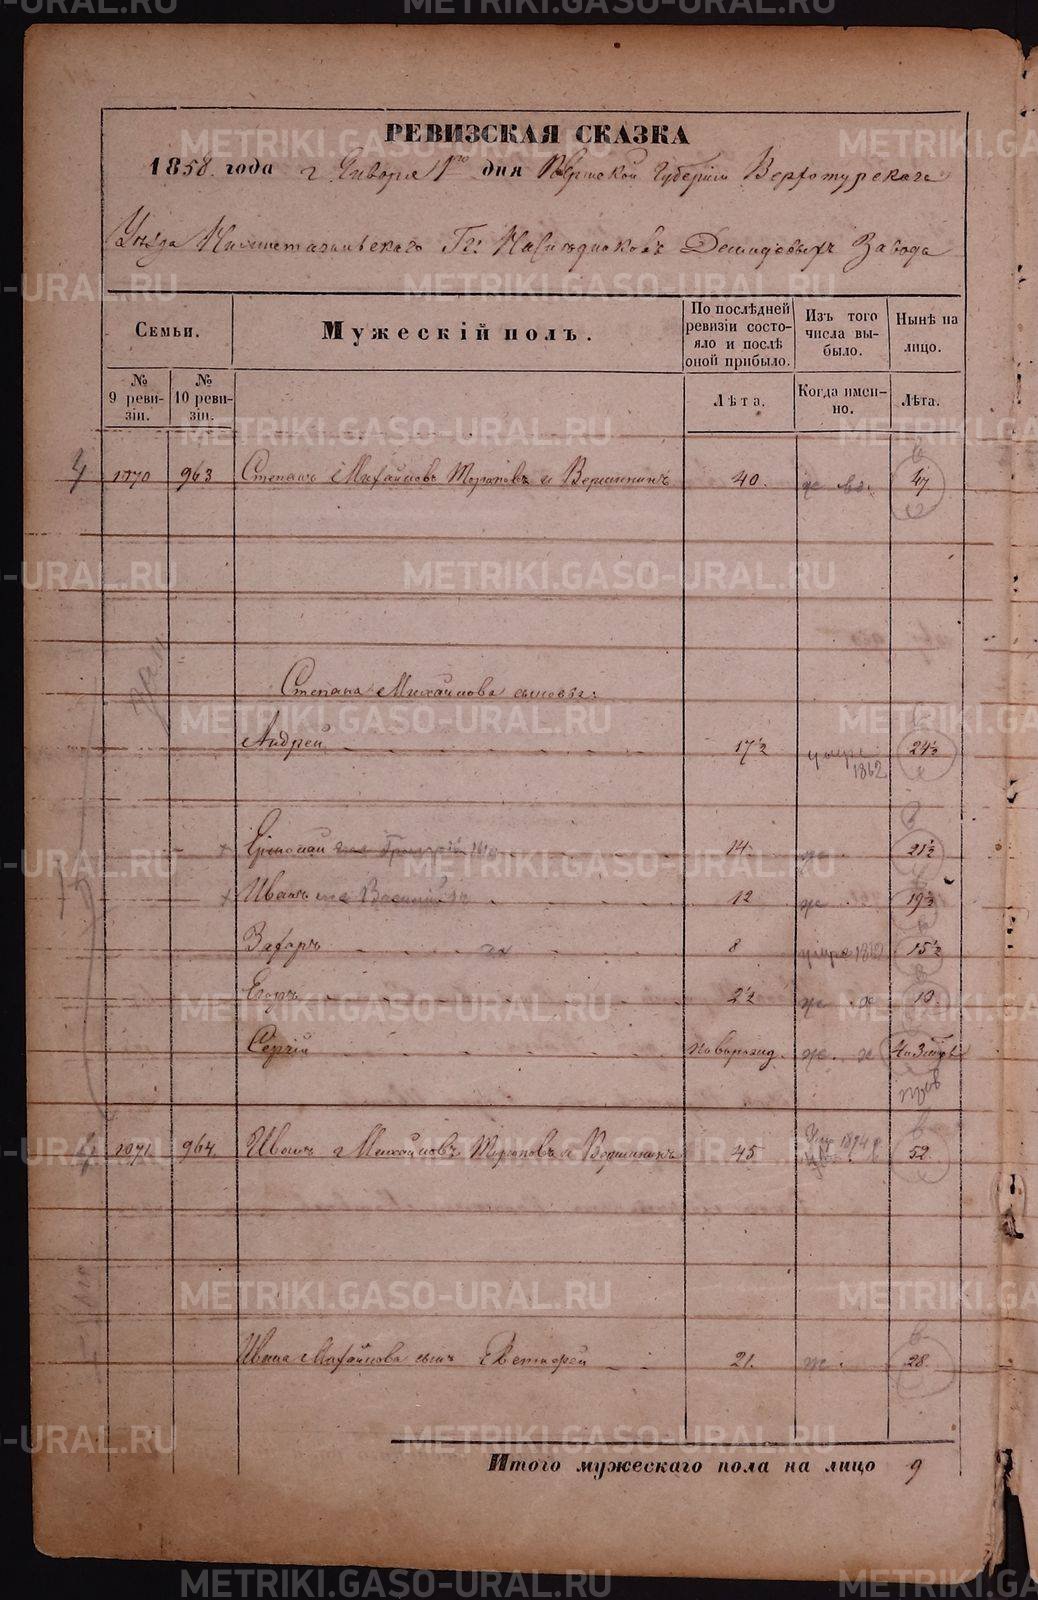 РЕВИЗСКАЯ СКАЗКА
1858 года Января 1го дня Пермской Губернии Верхотурскаго
Уѣзда Нижнетагильскаго Гг: Наслѣдниковъ Демидовыхъ Завода
Семьи.
Мужескій полъ.
По послѣдней ревизіи состояло и послѣ оной прибыло.
Изъ того числа выбыло.
Нынѣ на лицо.
№ 9 ревизіи.
№ 10 ревизіи.
Лѣта.
Когда именно.
Лѣта.
963 Степанъ Михайловъ Тороповъ и Вершининъ 40. 47
Степана Михайлова сыновья:
Андрей 17½ умре 1862 24½
14 21½
Иванъ 12 19½
Захаръ 8 умре 1862 15½
Егоръ 2½ 10
Сергій новорожд.
1071 964 Иванъ Михайловъ Тороповъ и Вершининъ 45 52
Ивана Михайлова сынъ 21. 28
Итого мужескаго пола на лицо 9
METRIKI.GASO-URAL.RU